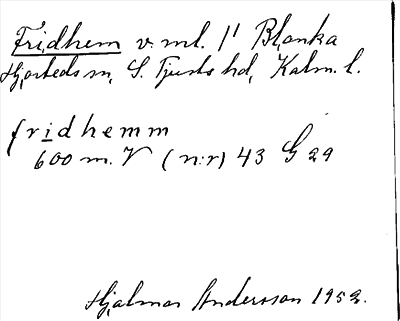 Fridhem v. ml. 1' Blanka
Hjorteds sn, S. Tjusts hd, Kalm. l.
fridhemm
600 m. V (nr) 43 G 29
Hjalmar Andersson 1952.